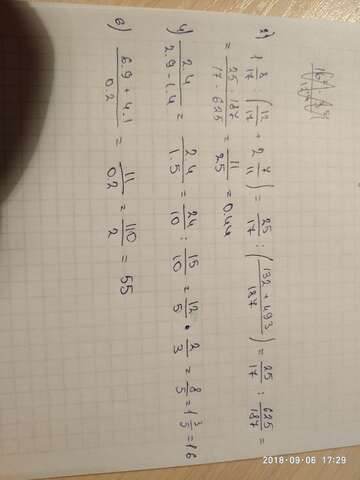 2) 1 8/17 : (12/17 + 2 7/11) = 25/17 : (132 + 493 / 187) = 25/17 : 625/187 =
= 25 · 187 / 17 · 625 = 11/25 = 0.44
4) 2.4 / 2.9 - 1.4 = 2.4 / 1.5 = 24/10 : 15/10 = 12/5 · 2/3 = 8/5 = 1 3/5 = 1.6
6) 6.9 + 4.1 / 0.2 = 11 / 0.2 = 110 / 2 = 55
2018-09-06 17:29